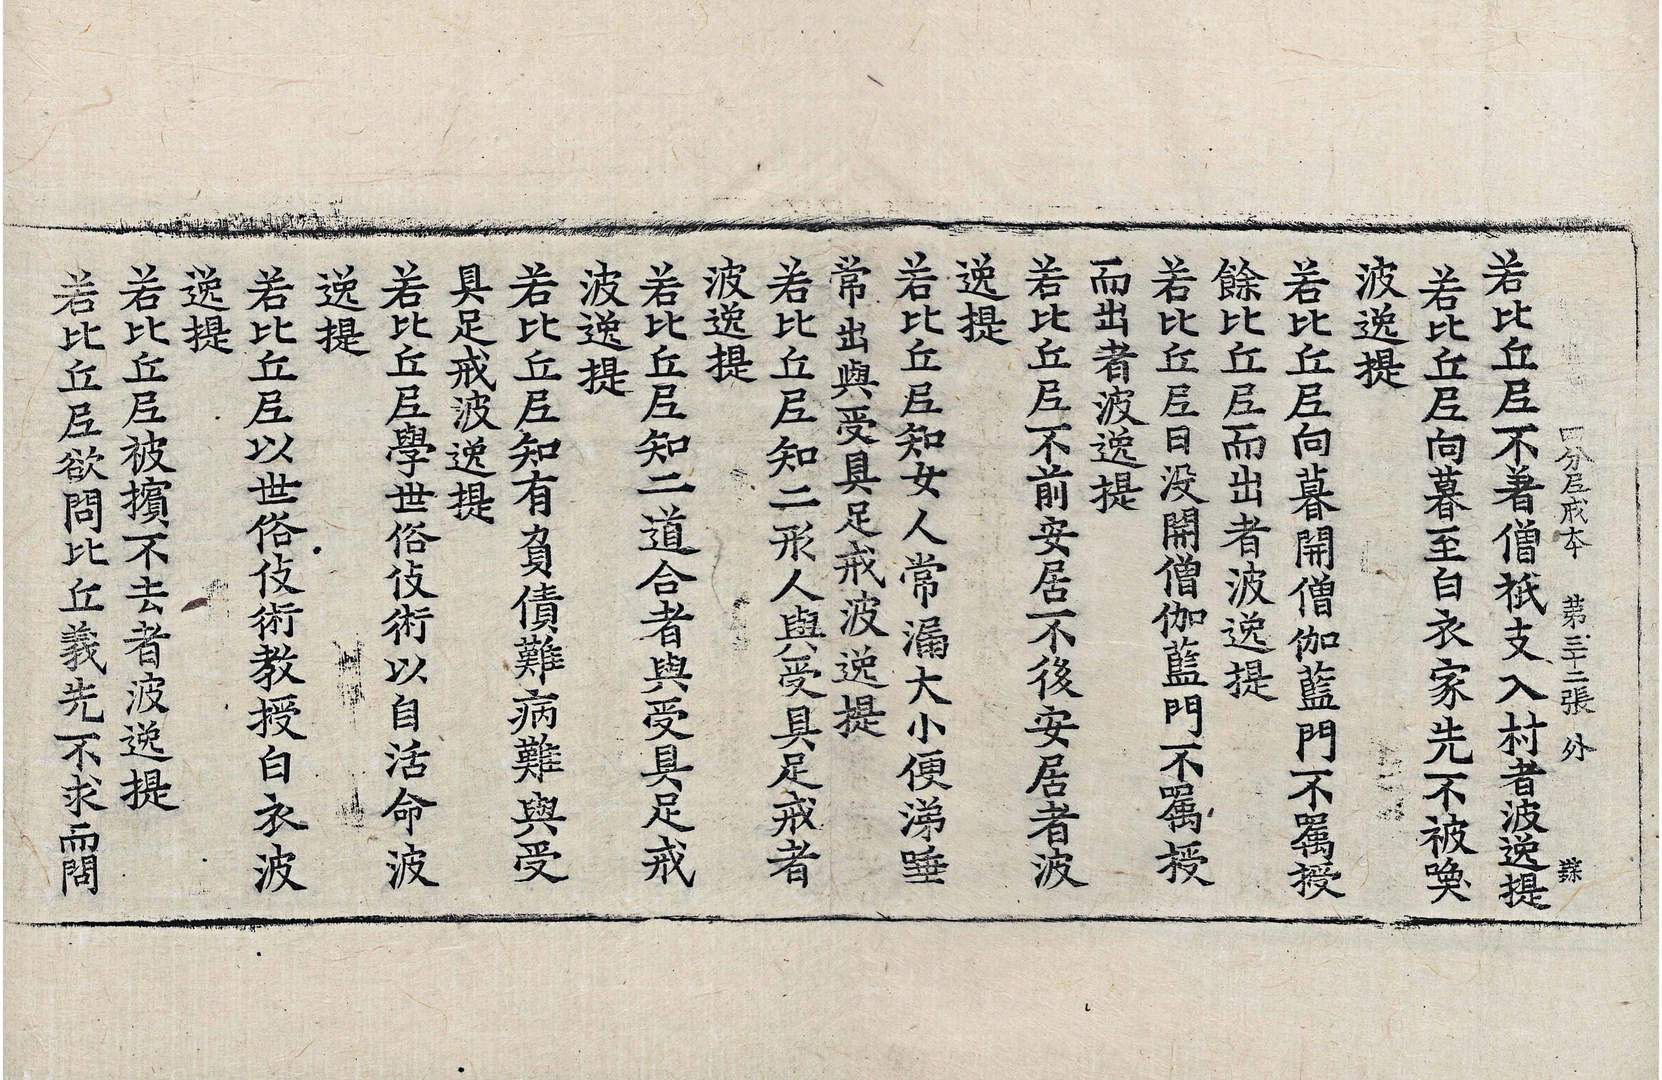 四分尼戒本 第三十二張 外
若比丘尼不著僧祇支入村者波逸提
若比丘尼向暮至白衣家先不被喚
波逸提
若比丘尼向暮開僧伽藍門不囑授
餘比丘尼而出者波逸提
若比丘尼日没開僧伽藍門不囑授
而出者波逸提
若比丘尼不前安居不後安居者波
逸提
若比丘尼知女人常漏大小便涕唾
常出與受具足戒波逸提
若比丘尼知二形人與受具足戒者
波逸提
若比丘尼知二道合者與受具足戒
波逸提
若比丘尼知有負債難病難與受
具足戒波逸提
若比丘尼學世俗伎術以自活命波
逸提
若比丘尼以世俗伎術教授白衣波
逸提
若比丘尼被擯不去者波逸提
若比丘尼欲問比丘義先不求而問